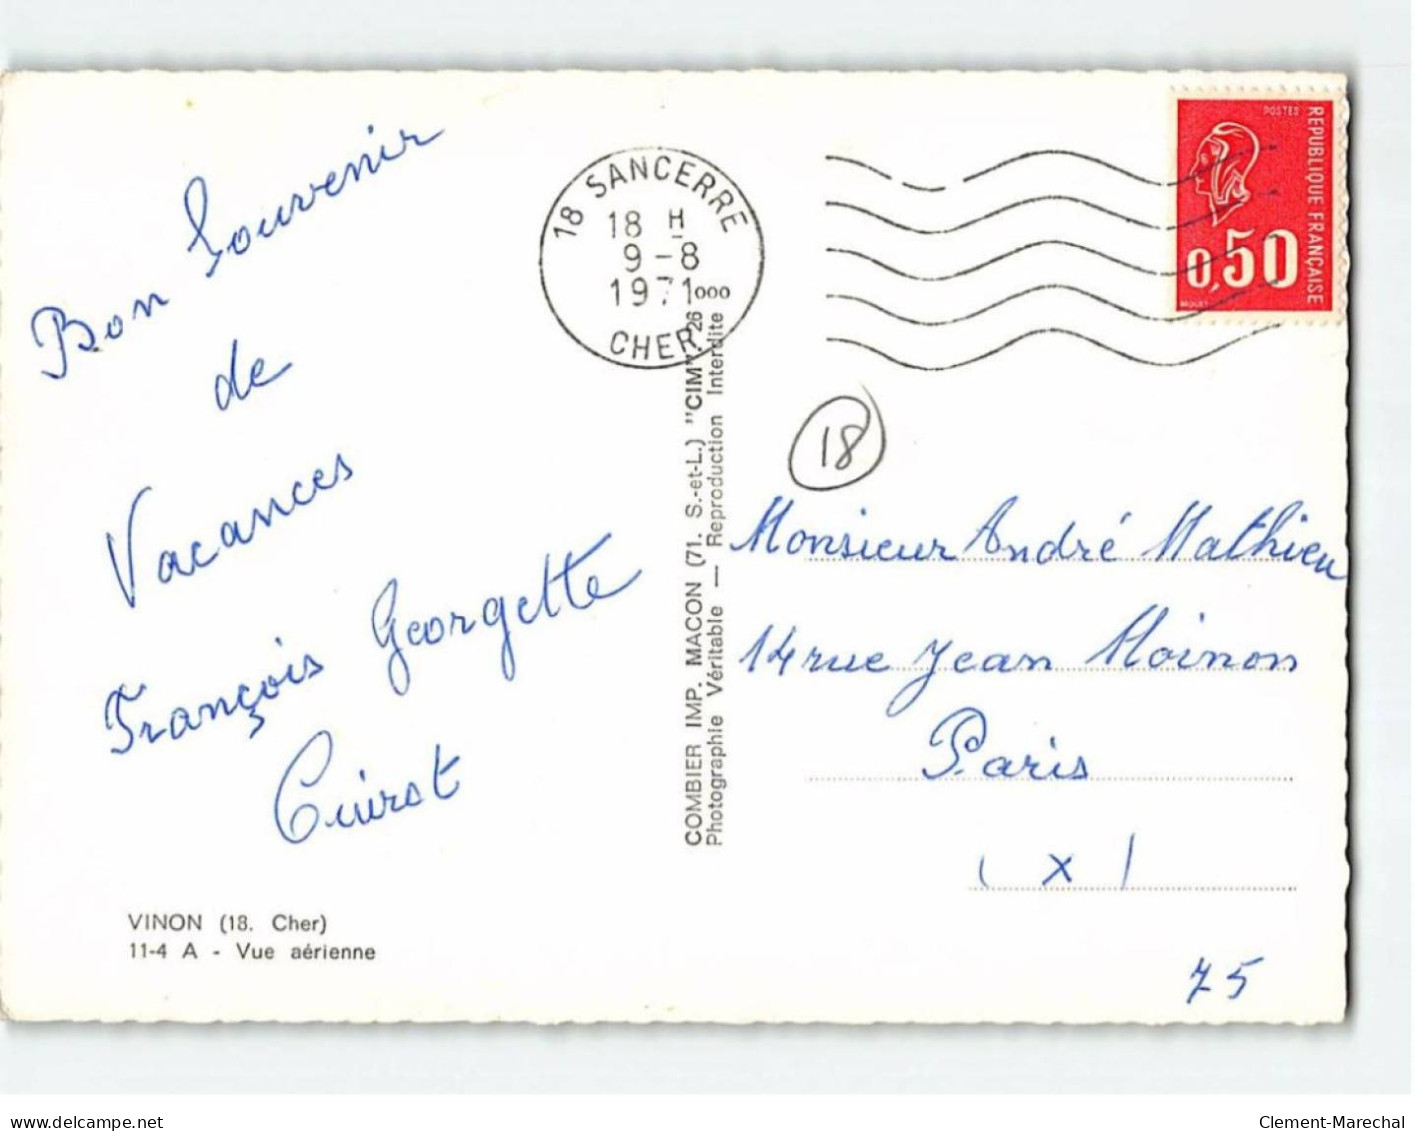 Bon Souvenir
de
Vacances
François Georgette
VINON (18. Cher)
11-4 A - Vue aérienne
18 SANCERRE
18 H
9-8
1971
CHER
COMBIER IMP. MACON (71. S.-et-L.) "CIM" 26000
Photographie Véritable — Reproduction Interdite
POSTES
REPUBLIQUE FRANÇAISE
0,50
18
Monsieur André Mathieu
14 rue Jean Moinon
Paris
(X)
75
delcampe.net
Clement-Marechal